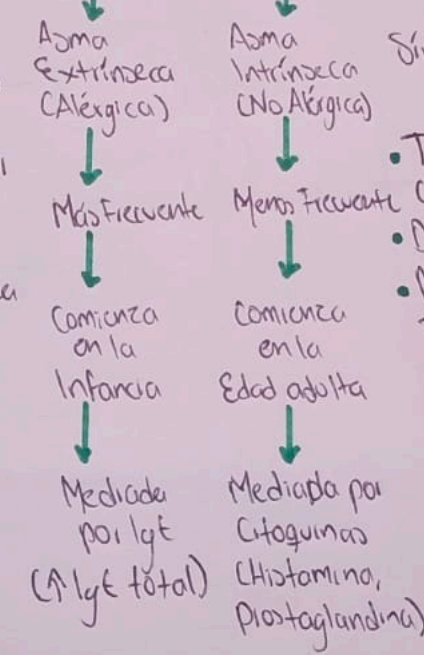 Asma
Extrínseca
(Alérgica)
Más Frecuente
Comienza
en la
Infancia
Mediada
por IgE
(↑ IgE total)
Asma
Intrínseca
(No Alérgica)
Menos Frecuente
Comienza
en la
Edad adulta
Mediada por
Citoquinas
(Histamina,
prostaglandina)